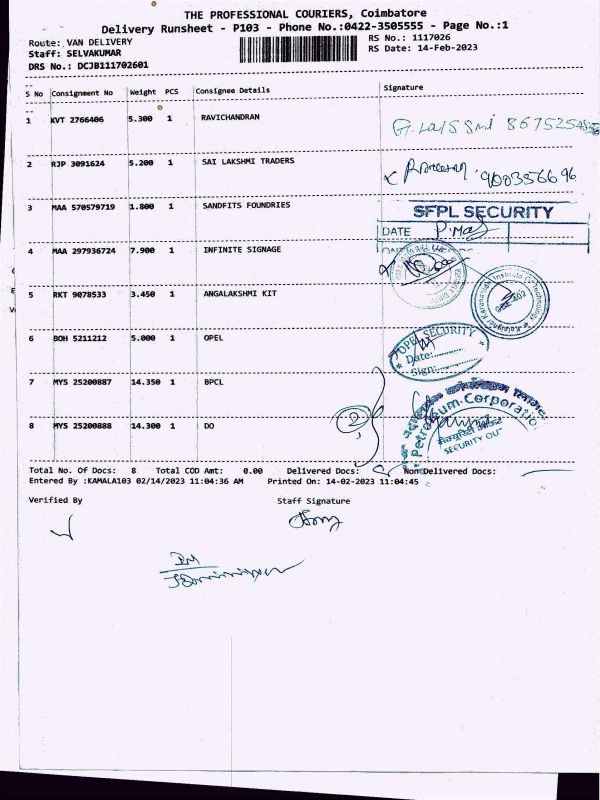 THE PROFESSIONAL COURIERS, Coimbatore
Delivery Runsheet - P103 - Phone No.:0422-3505555 - Page No.:1
Route: VAN DELIVERY RS No.: 1117026
Staff: SELVAKUMAR RS Date: 14-Feb-2023
DRS No.: DCJB111702601
S No Consignment No Weight PCS Consignee Details Signature
1 KVT 2766406 5.300 1 RAVICHANDRAN
2 RJP 3091624 5.200 1 SAI LAKSHMI TRADERS
3 MAA 570579719 1.800 1 SANDFITS FOUNDRIES
SFPL SECURITY
DATE
4 MAA 297936724 7.900 1 INFINITE SIGNAGE
5 RKT 9078533 3.450 1 ANGALAKSHMI KIT
6 BOH 5211212 5.000 1 OPEL
OPEL SECURITY
Date:
Sign:
7 MYS 25200887 14.350 1 BPCL
Petroleum Corporatio
8 MYS 25200888 14.300 1 DO
2
SECURITY OU
Total No. Of Docs: 8 Total COD Amt: 0.00 Delivered Docs: Non Delivered Docs:
Entered By :KAMALA103 02/14/2023 11:04:36 AM Printed On: 14-02-2023 11:04:45
Verified By Staff Signature